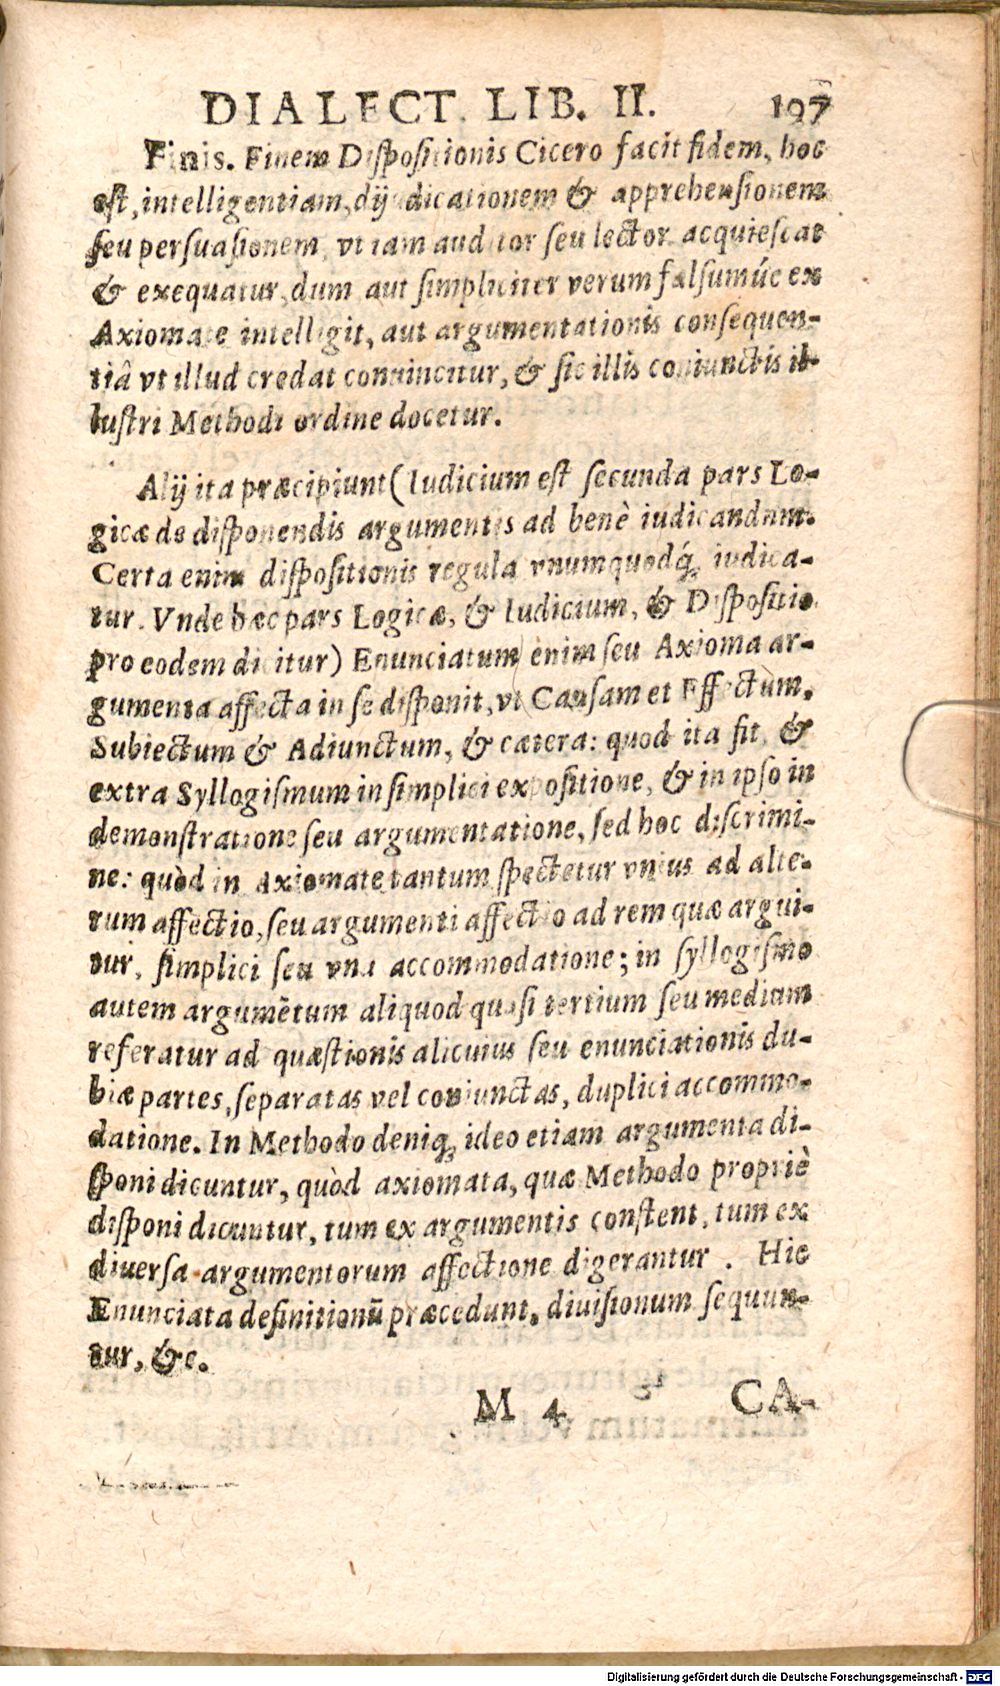 DIALECT. LIB. II. 197
Finis. Finem Diſpoſitionis Cicero facit fidem, hoc
eſt, intelligentiam, dijudicationem & apprehenſionem
ſeu perſuaſionem, vt iam auditor ſeu lector acquieſcat
& exequatur, dum aut ſimpliciter verum falſumúe ex
Axiomate intelligit, aut argumentationis conſequen-
tiâ vt illud credat conuincitur, & ſic illis coniunctis il-
luſtri Methodi ordine docetur.
Alij ita præcipiunt (Iudicium eſt ſecunda pars Lo-
gicæ de diſponendis argumentis ad benè iudicandum.
Certa enim diſpoſitionis regula vnumquodq́; iudica-
tur. Vnde hæc pars Logicæ, & Iudicium, & Diſpoſitio
pro eodem dicitur) Enunciatum enim ſeu Axioma ar-
gumenta affecta in ſe diſponit, vt Cauſam et Effectum,
Subiectum & Adiunctum, & cætera: quod ita fit, &
extra Syllogiſmum in ſimplici expoſitione, & in ipſo in
demonſtratione ſeu argumentatione, ſed hoc diſcrimi-
ne: quòd in Axiomate tantum ſpectetur vnius ad alte-
rum affectio, ſeu argumenti affectio ad rem quæ argui-
tur, ſimplici ſeu vna accommodatione; in ſyllogiſmo
autem argumẽtum aliquod quaſi tertium ſeu medium
referatur ad quæſtionis alicuius ſeu enunciationis du-
biæ partes, ſeparatas vel coniunctas, duplici accommo-
datione. In Methodo deniq; ideo etiam argumenta di-
ſponi dicuntur, quòd axiomata, quæ Methodo propriè
diſponi dicuntur, tum ex argumentis conſtent, tum ex
diuerſa argumentorum affectione digerantur. Hic
Enunciata definitionū præcedunt, diuiſionum ſequun-
tur, &c.
M 4 CA-
Digitalisierung gefördert durch die Deutsche Forschungsgemeinschaft - DFG